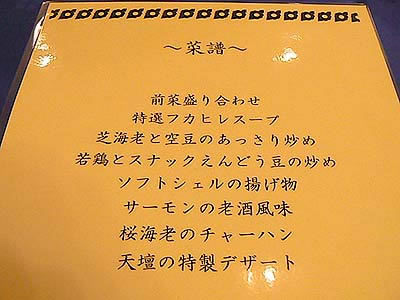 ～菜譜～
前菜盛り合わせ
特選フカヒレスープ
芝海老と空豆のあっさり炒め
若鶏とスナックえんどう豆の炒め
ソフトシェルの揚げ物
サーモンの老酒風味
桜海老のチャーハン
天壇の特製デザート